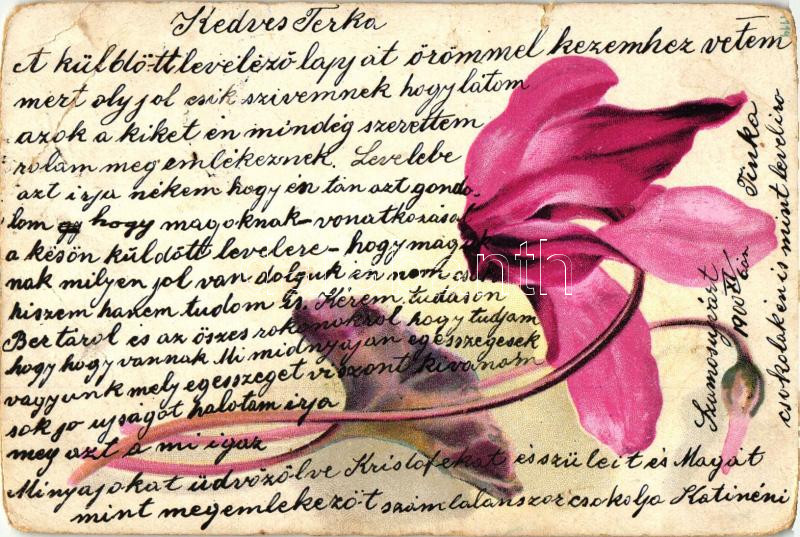 Kedves Terka
A küldött levelező lapját örömmel kezemhez vetem
mert oly jol esik szivemnek hogy látom
azok a kiket én mindég szerettem
rolam megemlékeznek. Levelebe
azt irja nékem hogy én tán azt gondo-
lom hogy magoknak – vonatkozásal
a késön küldött levelere – hogy maguk
nak milyen jol van dolguk én nem csak
hiszem hanem tudom is. Kérem tudason
Bertárol és az öszes rokonokrol hogy tudjam
hogy hogy vannak. Mi midnyájan egésségesek
vagyunk mely egésséget viszont kivánom
sok jo ujságot halotam irja
meg azt a mi igaz
Minyájokat üdvözölve Kristofékat és szüleit és Magát
mint megemlékezöt számtalanszor csokolja Katinéni
Szamosujvárt
1900 XI/ én
csokolak én is mint leveliro
Tinka
nth